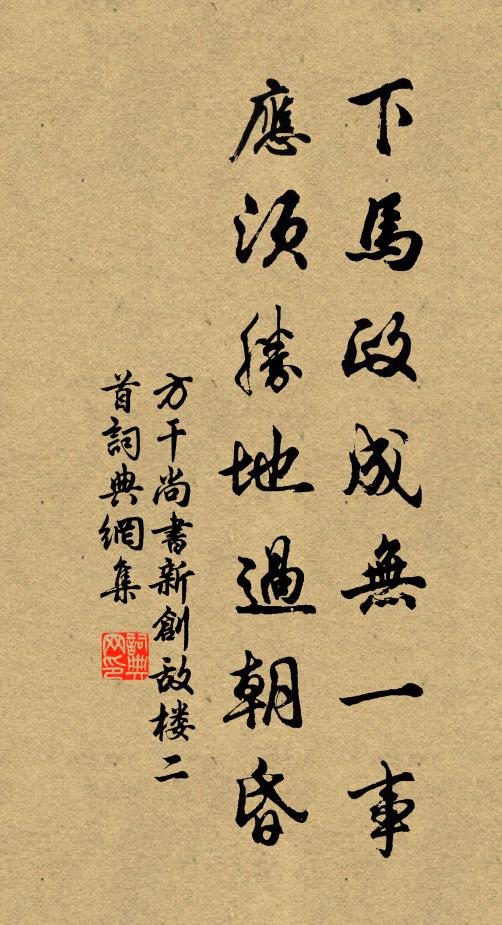 下馬政成無一事
應須勝地過朝昏
方干尚書新創敌楼二
首詞典網集
詞典网印